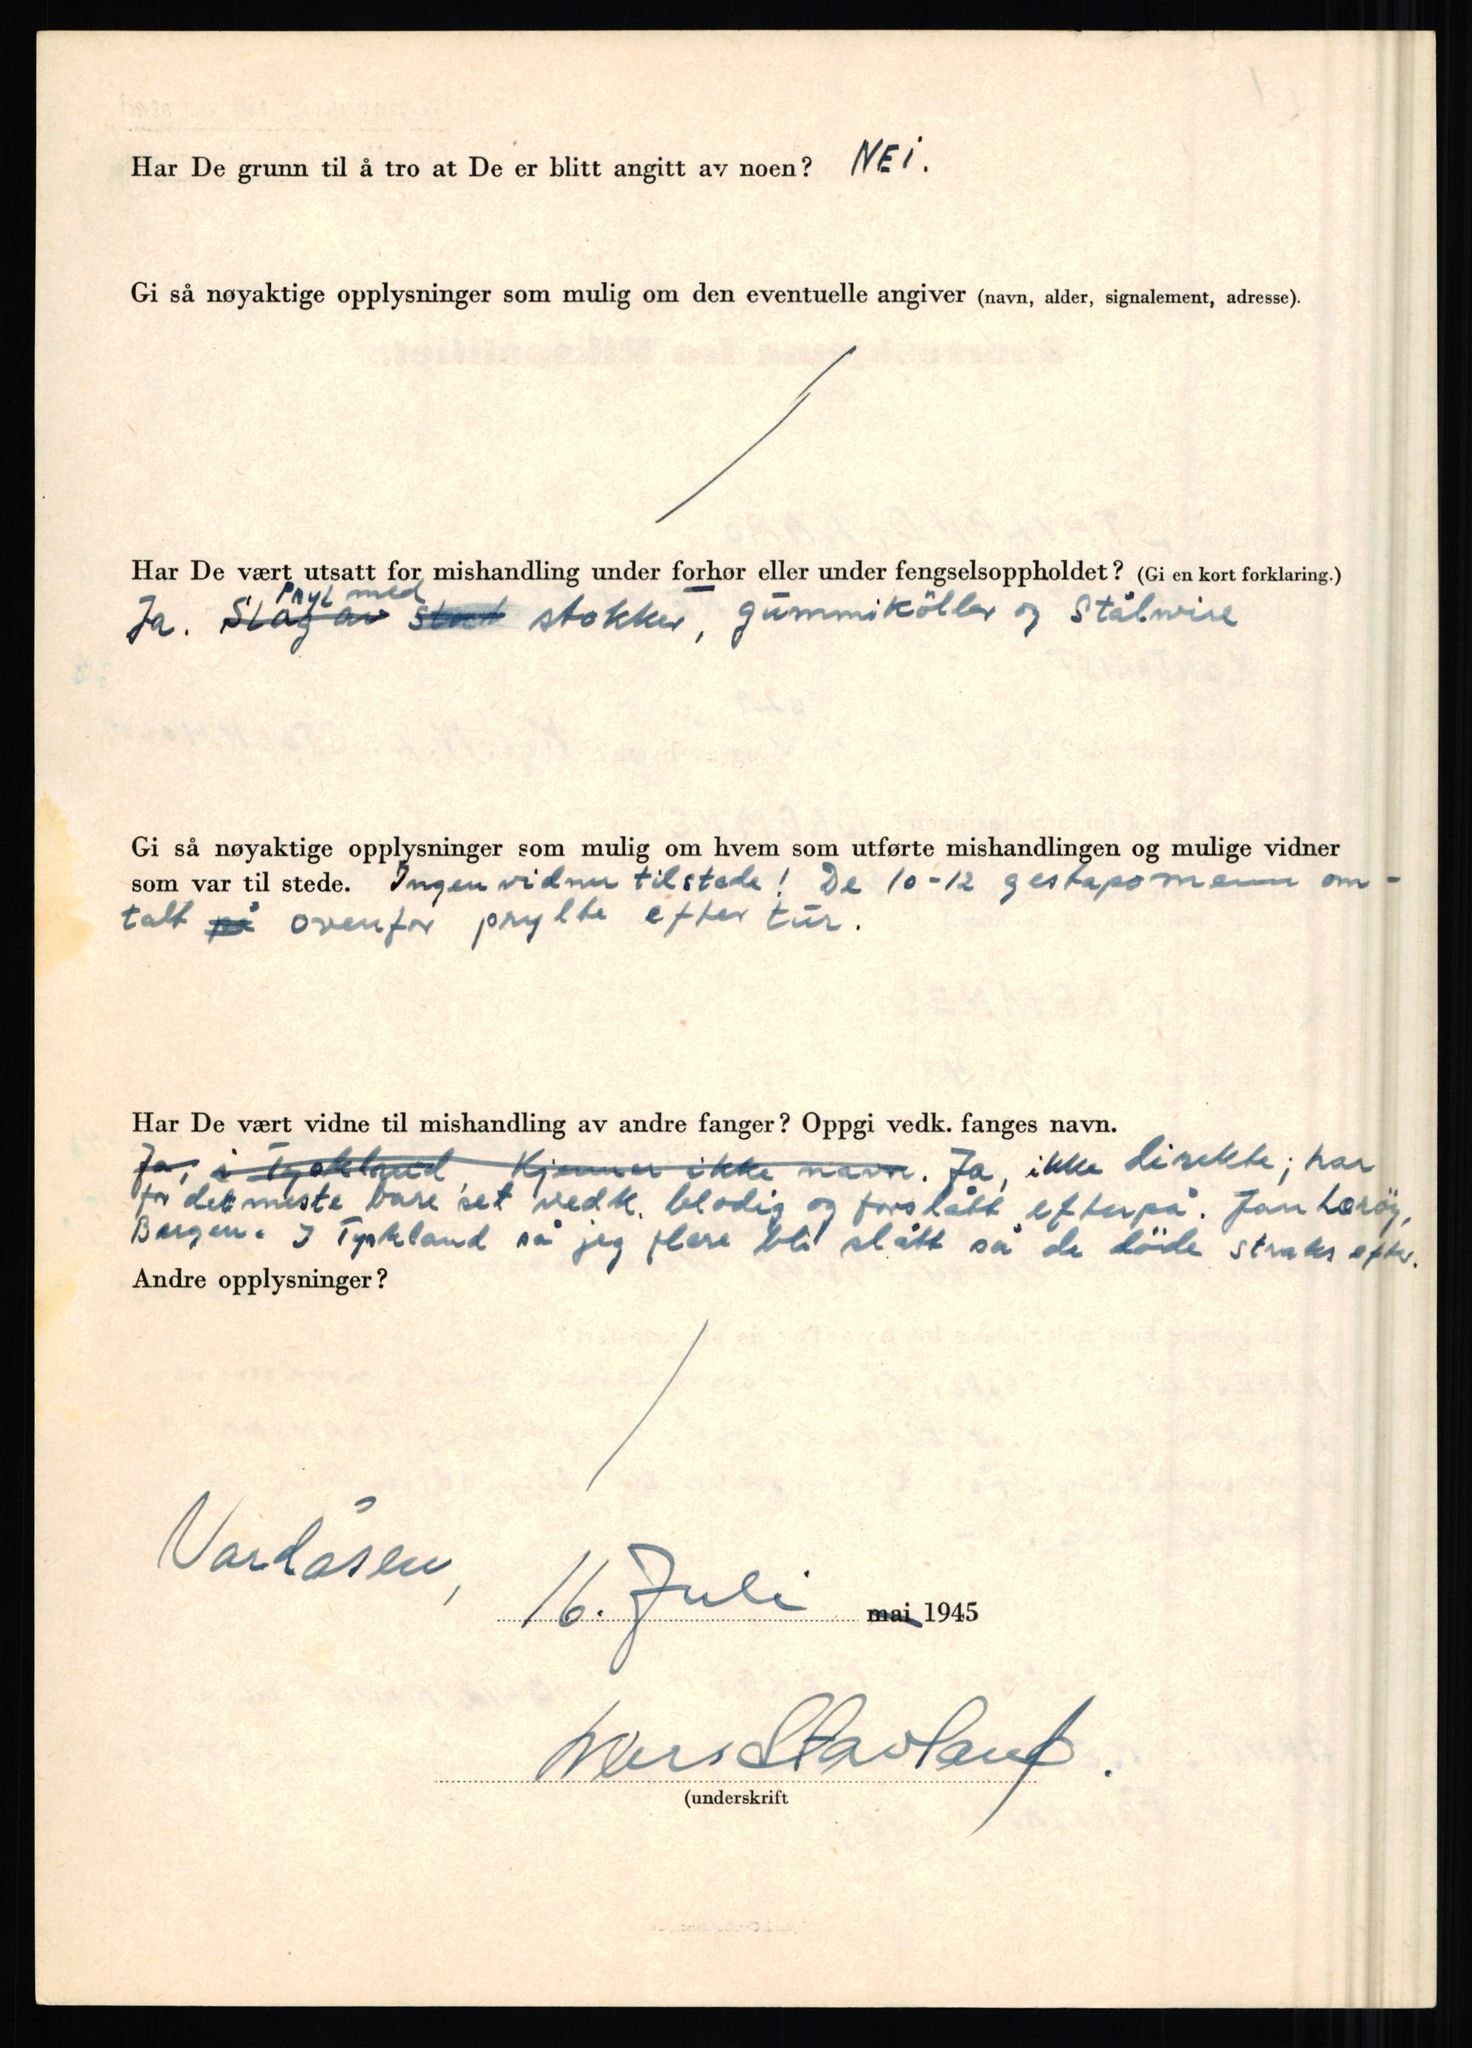 Har De grunn til å tro at De er blitt angitt av noen? NEi.
Gi så nøyaktige opplysninger som mulig om den eventuelle angiver (navn, alder, signalement, adresse).
Har De vært utsatt for mishandling under forhør eller under fengselsoppholdet? (Gi en kort forklaring.)
Pryl med
Ja. Slag av stokker, gummikøller og Stålwire
Gi så nøyaktige opplysninger som mulig om hvem som utførte mishandlingen og mulige vidner
som var til stede. Ingen vidner tilstede! De 10-12 gestapomenn om-
talt på ovenfor prylte efter tur.
Har De vært vidne til mishandling av andre fanger? Oppgi vedk. fanges navn.
Ja, i Tyskland Kjenner ikke navn. Ja, ikke direkte; har
for det meste bare set vedk. blodig og forslått efterpå. Jan Lerøy,
Bergen. I Tyskland så jeg flere bli slått så de døde straks efter.
Andre opplysninger?
Vardåsen,
16. Juli mai 1945
Stavland.
(underskrift